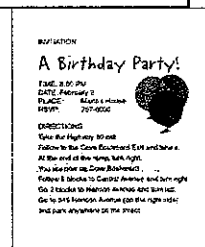 INVITATION
A Birthday Party!
TIME: 8:00 PM
DATE: February 2
PLACE: House
RSVP:
DIRECTIONS
Take the Highway exit
Follow to the Cove Boulevard Exit and
At the end of the ramp, turn right.
You are now on Cove Boulevard
Follow 5 blocks to Central Avenue and turn right
Go 2 blocks to Hanson Avenue and turn left.
Go to Hanson Avenue (on the right side)
and park anywhere on the street